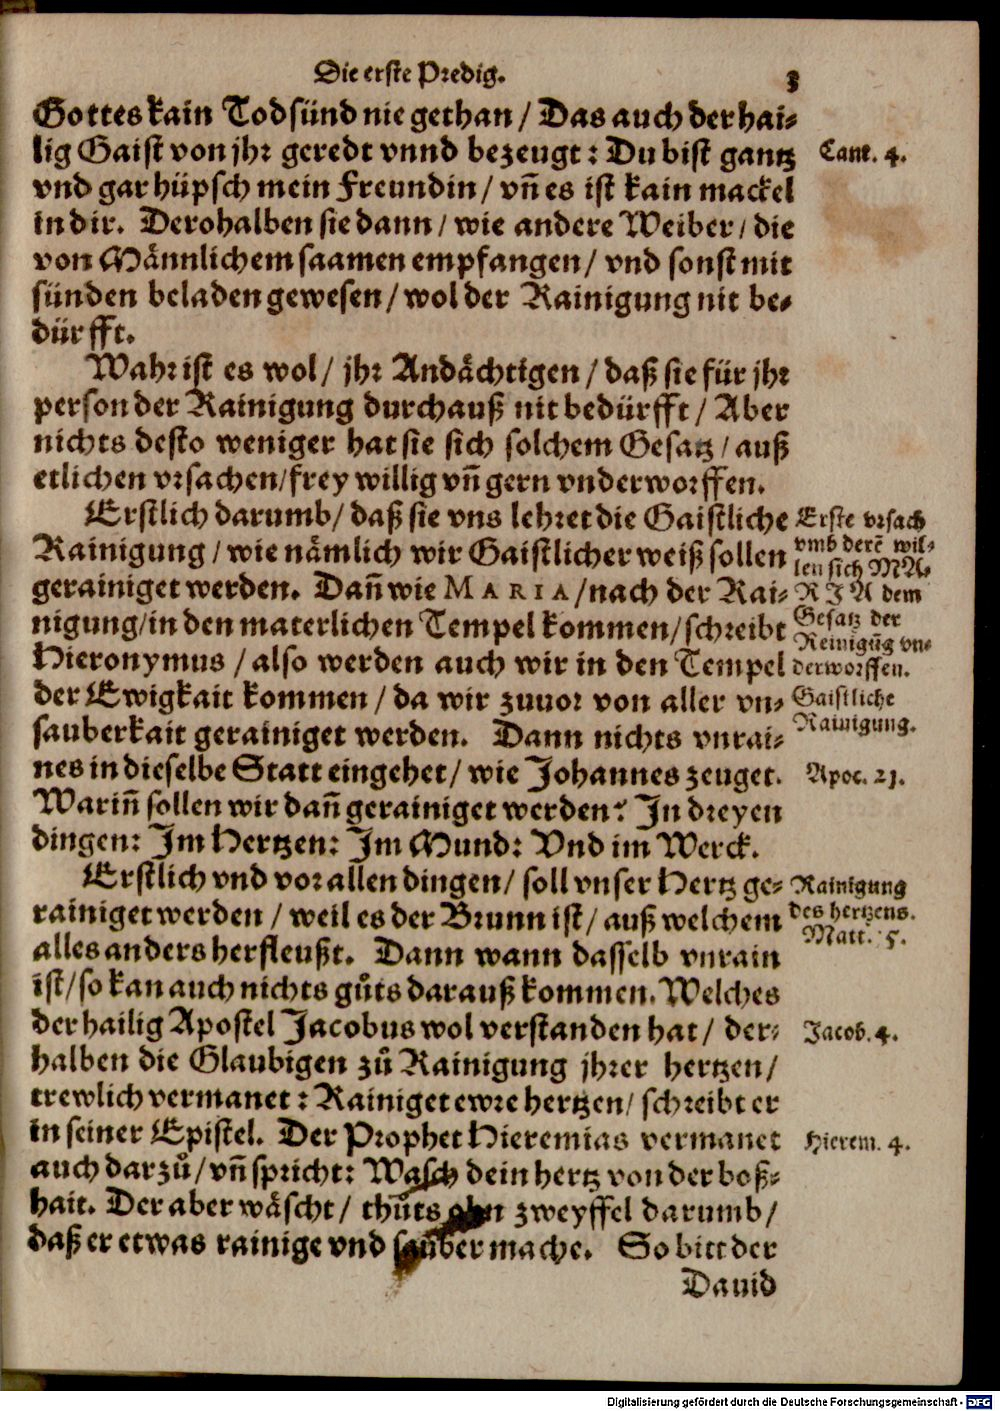 Die erste Predig. 3
Gottes kain Todsünd nie gethan / Das auch der hai-
lig Gaist von jhr geredt vnnd bezeugt: Du bist gantz
vnd gar hüpsch mein Freundin / vñ es ist kain mackel
in dir. Derohalben sie dann / wie andere Weiber / die
von Männlichem saamen empfangen / vnd sonst mit
sünden beladen gewesen / wol der Rainigung nit be-
dürfft.
Cant. 4.
Wahr ist es wol / jhr Andächtigen / daß sie für jhr
person der Rainigung durchauß nit bedürfft / Aber
nichts desto weniger hat sie sich solchem Gesatz / auß
etlichen vrsachen / frey willig vñ gern vnderworffen.
Erstlich darumb / daß sie vns lehret die Gaistliche
Rainigung / wie nämlich wir Gaistlicher weiß sollen
gerainiget werden. Dañ wie MARIA / nach der Rai-
nigung / in den materlichen Tempel kommen / schreibt
Hieronymus / also werden auch wir in den Tempel
der Ewigkait kommen / da wir zuuor von aller vn-
sauberkait gerainiget werden. Dann nichts vnrai-
nes in dieselbe Statt eingehet / wie Johannes zeuget.
Wariñ sollen wir dañ gerainiget werden? In dreyen
dingen: Im Hertzen: Im Mund: Vnd im Werck.
Erste vrsach
vmb derē wil-
len sich MA-
RIA dem
Gesatz der
Reinigūg vn-
derworffen.
Gaistliche
Rainigung.
Apoc. 21.
Erstlich vnd vor allen dingen / soll vnser Hertz ge-
rainiget werden / weil es der Brunn ist / auß welchem
alles anders herfleußt. Dann wann dasselb vnrain
ist / so kan auch nichts gůts darauß kommen. Welches
der hailig Apostel Jacobus wol verstanden hat / der-
halben die Glaubigen zů Rainigung jhrer hertzen /
trewlich vermanet: Rainiget ewre hertzen / schreibt er
in seiner Epistel. Der Prophet Hieremias vermanet
auch darzů / vñ spricht: Wasch dein hertz von der boß-
hait. Der aber wäscht / thůts ohn zweyffel darumb /
daß er etwas rainige vnd sauber mache. So bitt der
Rainigung
des hertzens.
Matt. 5.
Jacob. 4.
Hierem. 4.
Dauid
Digitalisierung gefördert durch die Deutsche Forschungsgemeinschaft - DFG